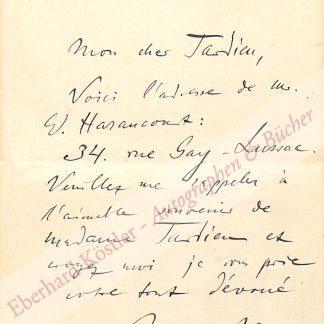 Mon cher Tardieu,
Voici l'adresse de M.
E. Haraucourt :
34. rue Gay-Lussac.
Veuillez me rappeler à
l'aimable souvenir de
madame Tardieu et
croyez moi je vous prie
votre tout dévoué
Eberhard Köstler - Autographen & Bücher